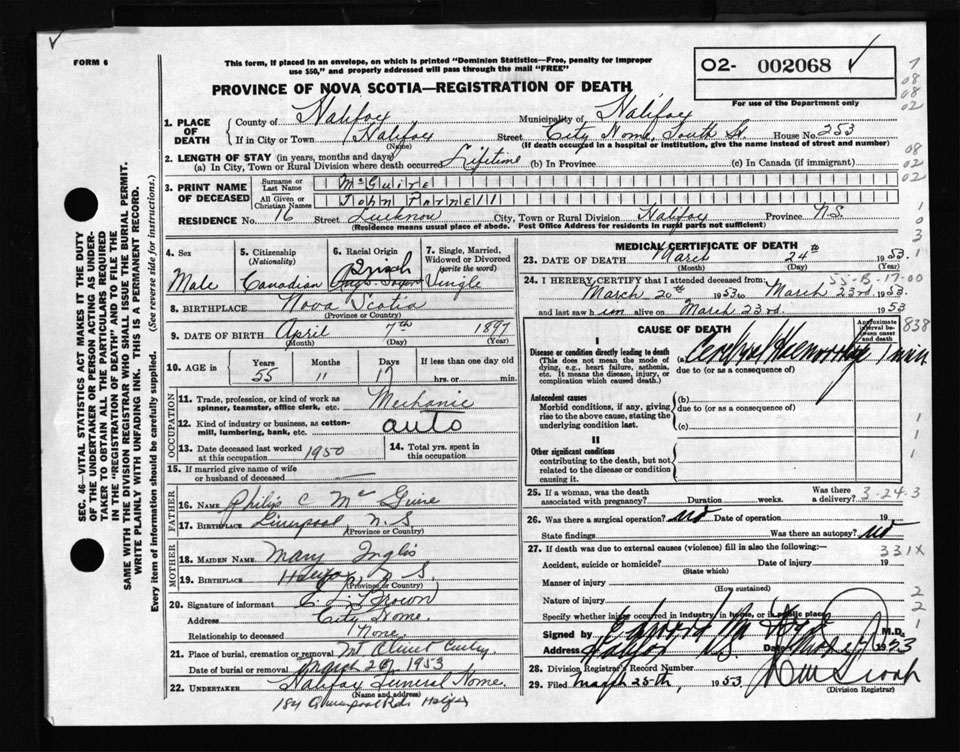 FORM 6
This form, if placed in an envelope, on which is printed "Dominion Statistics—Free, penalty for improper
use $50," and properly addressed will pass through the mail "FREE"
O2- 002068 ✓
For use of the Department only
PROVINCE OF NOVA SCOTIA—REGISTRATION OF DEATH
1. PLACE OF DEATH
County of Halifax Municipality of Halifax
If in City or Town Halifax Street City Home, South St. House No. 253
(Name) (If death occurred in a hospital or institution, give the name instead of street and number)
2. LENGTH OF STAY (in years, months and days)
(a) In City, Town or Rural Division where death occurred Lifetime (b) In Province (c) In Canada (if immigrant)
3. PRINT NAME OF DECEASED
Surname or Last Name McGuire
All Given or Christian Names John Parnell
RESIDENCE No. 16 Street Lucknow City, Town or Rural Division Halifax Province N.S.
(Residence means usual place of abode. Post Office Address for residents in rural parts not sufficient)
4. Sex Male
5. Citizenship (Nationality) Canadian
6. Racial Origin
7. Single, Married, Widowed or Divorced (write the word) Single
8. BIRTHPLACE Nova Scotia
(Province or Country)
9. DATE OF BIRTH April 7th 1897
(Month) (Day) (Year)
10. AGE in Years 55 Months 11 Days 17 If less than one day old hrs. or min.
OCCUPATION
11. Trade, profession, or kind of work as spinner, teamster, office clerk, etc. Mechanic
12. Kind of industry or business, as cotton-mill, lumbering, bank, etc. auto
13. Date deceased last worked at this occupation 1950
14. Total yrs. spent in this occupation
15. If married give name of wife or husband of deceased —
FATHER
16. NAME Philip C McGuire
17. BIRTHPLACE Liverpool, N.S.
(Province or Country)
MOTHER
18. MAIDEN NAME Mary Inglis
19. BIRTHPLACE Halifax N.S.
(Province or Country)
20. Signature of informant Brown
Address City Home.
Relationship to deceased None.
21. Place of burial, cremation or removal Mt Olivet
Date of burial or removal March 26, 1953
22. UNDERTAKER Halifax Funeral Home.
(Name and address)
184
MEDICAL CERTIFICATE OF DEATH
23. DATE OF DEATH March 24th 1953.
(Month) (Day) (Year)
24. I HEREBY CERTIFY that I attended deceased from: 55-B-17-00
March 20th 1953 to March 23rd 1953.
and last saw him alive on March 23rd. 1953
CAUSE OF DEATH
Approximate interval between onset and death
838
I
Disease or condition directly leading to death
(This does not mean the mode of dying, e.g., heart failure, asthenia, etc. It means the disease, injury, or complication which caused death.)
(a) Cerebral Hemorrhage 1 min
due to (or as a consequence of)
Antecedent causes
Morbid conditions, if any, giving rise to the above cause, stating the underlying condition last.
(b)
due to (or as a consequence of)
(c)
II
Other significant conditions
contributing to the death, but not related to the disease or condition causing it.
25. If a woman, was the death associated with pregnancy? Duration weeks. Was there a delivery? 3-24-3
26. Was there a surgical operation? no Date of operation 19
State findings Was there an autopsy? no
27. If death was due to external causes (violence) fill in also the following:— 331X
Accident, suicide or homicide? Date of injury 19
(State which)
Manner of injury
(How sustained)
Nature of injury
Specify whether injury occurred in industry, in home, or in public place
Signed by M.D.
Address Halifax N.S. Date
28. Division Registrar's Record Number
29. Filed March 25th, 1953
(Division Registrar)
SEC. 46—VITAL STATISTICS ACT MAKES IT THE DUTY
OF THE UNDERTAKER OR PERSON ACTING AS UNDER-
TAKER TO OBTAIN ALL THE PARTICULARS REQUIRED
IN THE "REGISTRATION OF DEATH" AND TO FILE THE
SAME WITH THE DIVISION REGISTRAR WHO SHALL ISSUE THE BURIAL PERMIT.
WRITE PLAINLY WITH UNFADING INK. THIS IS A PERMANENT RECORD.
Every item of information should be carefully supplied. (See reverse side for instructions.)